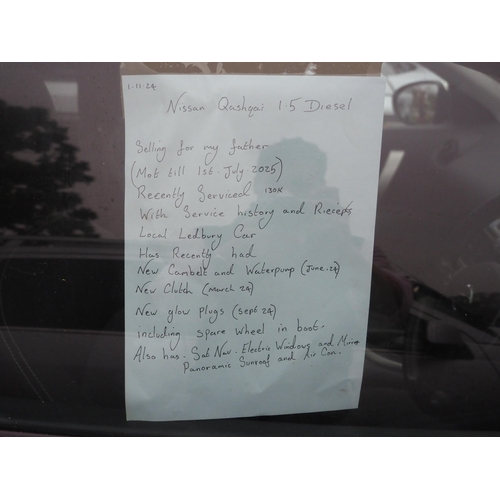 1-11-24
Nissan Qashqai 1.5 Diesel
Selling for my father
(Mot till 1st. July 2025)
Recently Serviced 130K
With Service history and Reciepts
Local Ledbury Car
Has Recently had
New Cambelt and Waterpump (June.24)
New Clutch (March 24)
New glow plugs (Sept 24)
including spare wheel in boot.
Also has. Sat Nav. Electric Windows and Mirror
Panoramic Sunroof and Air Con.